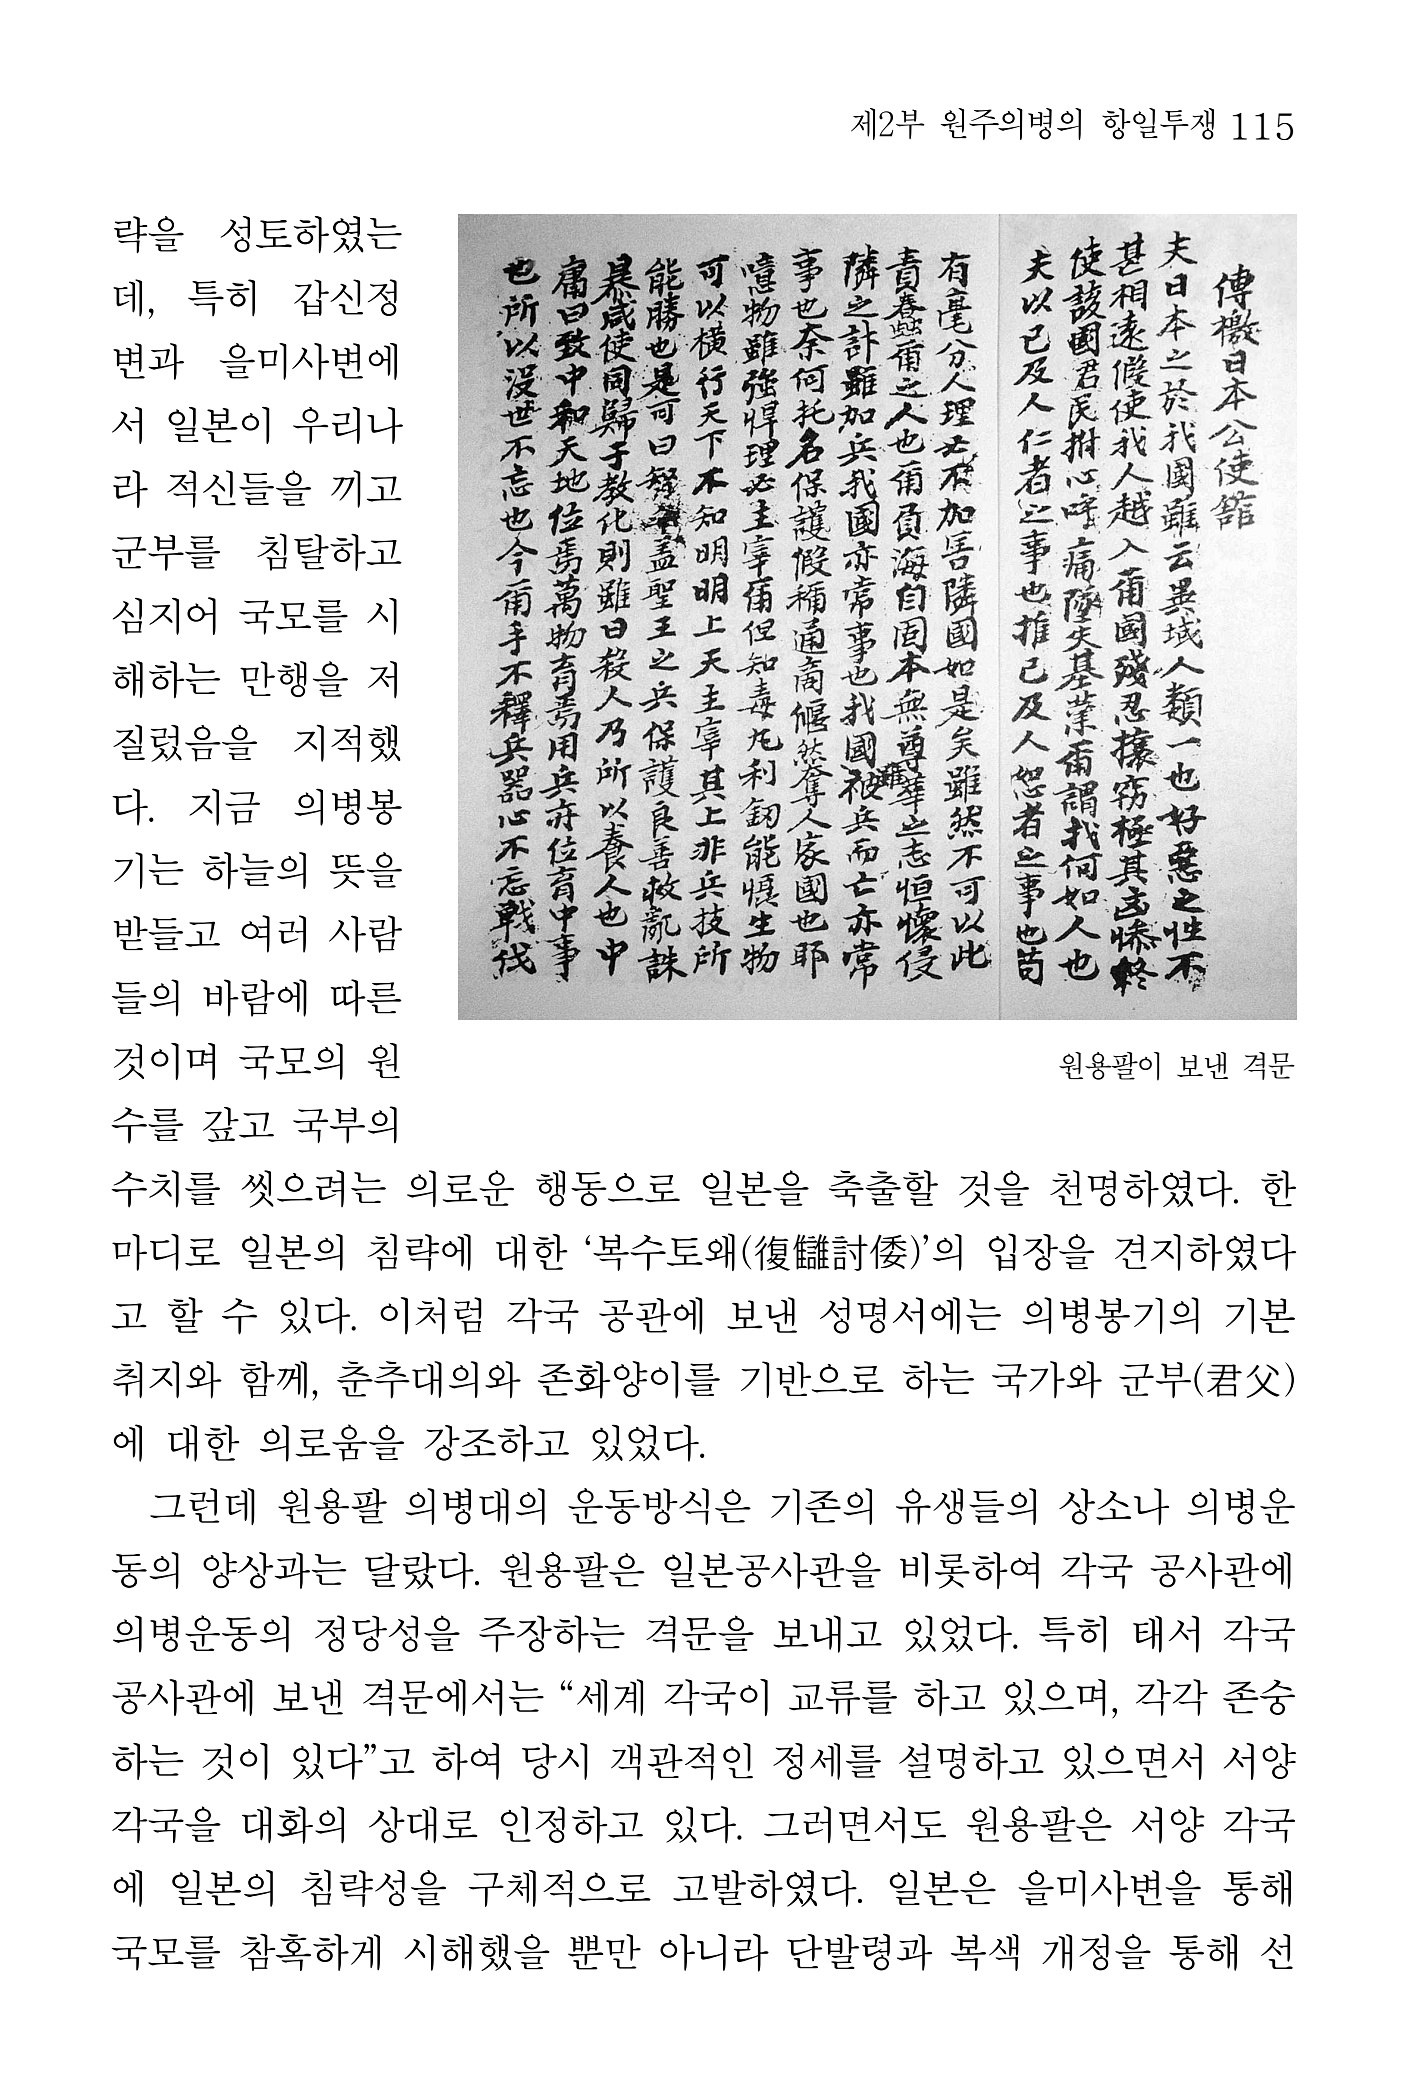 제2부 원주의병의 항일투쟁 115
략을 성토하였는
데, 특히 갑신정
변과 을미사변에
서 일본이 우리나
라 적신들을 끼고
군부를 침탈하고
심지어 국모를 시
해하는 만행을 저
질렀음을 지적했
다. 지금 의병봉
기는 하늘의 뜻을
받들고 여러 사람
들의 바람에 따른
것이며 국모의 원
수를 갚고 국부의
傳檄日本公使舘
夫日本之於我國雖云異域人類一也好惡之性不
甚相遠假使我人越入甭國殘忍攘竊極其凶悖終
使該國君民拊心呼痛墜失基業甭謂我何如人也
夫以己及人仁者之事也推己及人恕者之事也苟
有毫分人理必不加害隣國如是矣雖然不可以此
責蠢甭之人也甭負海自固本無尊華之志恒懷侵
隣之計雖加兵我國亦常事也我國被兵而亡亦常
事也奈何托名保護假稱通商偃然奪人家國也耶
噫物雖強悍理必主宰甭但知毒丸利釰能慑生物
可以橫行天下不知明明上天主宰其上非兵技所
能勝也是可曰 盖聖王之兵保護良善救亂誅
暴咸使同歸于教化則雖曰殺人乃所以養人也中
庸曰致中和天地位焉萬物育焉用兵亦位育中事
也所以沒世不忘也今甭手不釋兵器心不忘戰伐
원용팔이 보낸 격문
수치를 씻으려는 의로운 행동으로 일본을 축출할 것을 천명하였다. 한
마디로 일본의 침략에 대한 ‘복수토왜(復讎討倭)’의 입장을 견지하였다
고 할 수 있다. 이처럼 각국 공관에 보낸 성명서에는 의병봉기의 기본
취지와 함께, 춘추대의와 존화양이를 기반으로 하는 국가와 군부(君父)
에 대한 의로움을 강조하고 있었다.
그런데 원용팔 의병대의 운동방식은 기존의 유생들의 상소나 의병운
동의 양상과는 달랐다. 원용팔은 일본공사관을 비롯하여 각국 공사관에
의병운동의 정당성을 주장하는 격문을 보내고 있었다. 특히 태서 각국
공사관에 보낸 격문에서는 “세계 각국이 교류를 하고 있으며, 각각 존숭
하는 것이 있다”고 하여 당시 객관적인 정세를 설명하고 있으면서 서양
각국을 대화의 상대로 인정하고 있다. 그러면서도 원용팔은 서양 각국
에 일본의 침략성을 구체적으로 고발하였다. 일본은 을미사변을 통해
국모를 참혹하게 시해했을 뿐만 아니라 단발령과 복색 개정을 통해 선